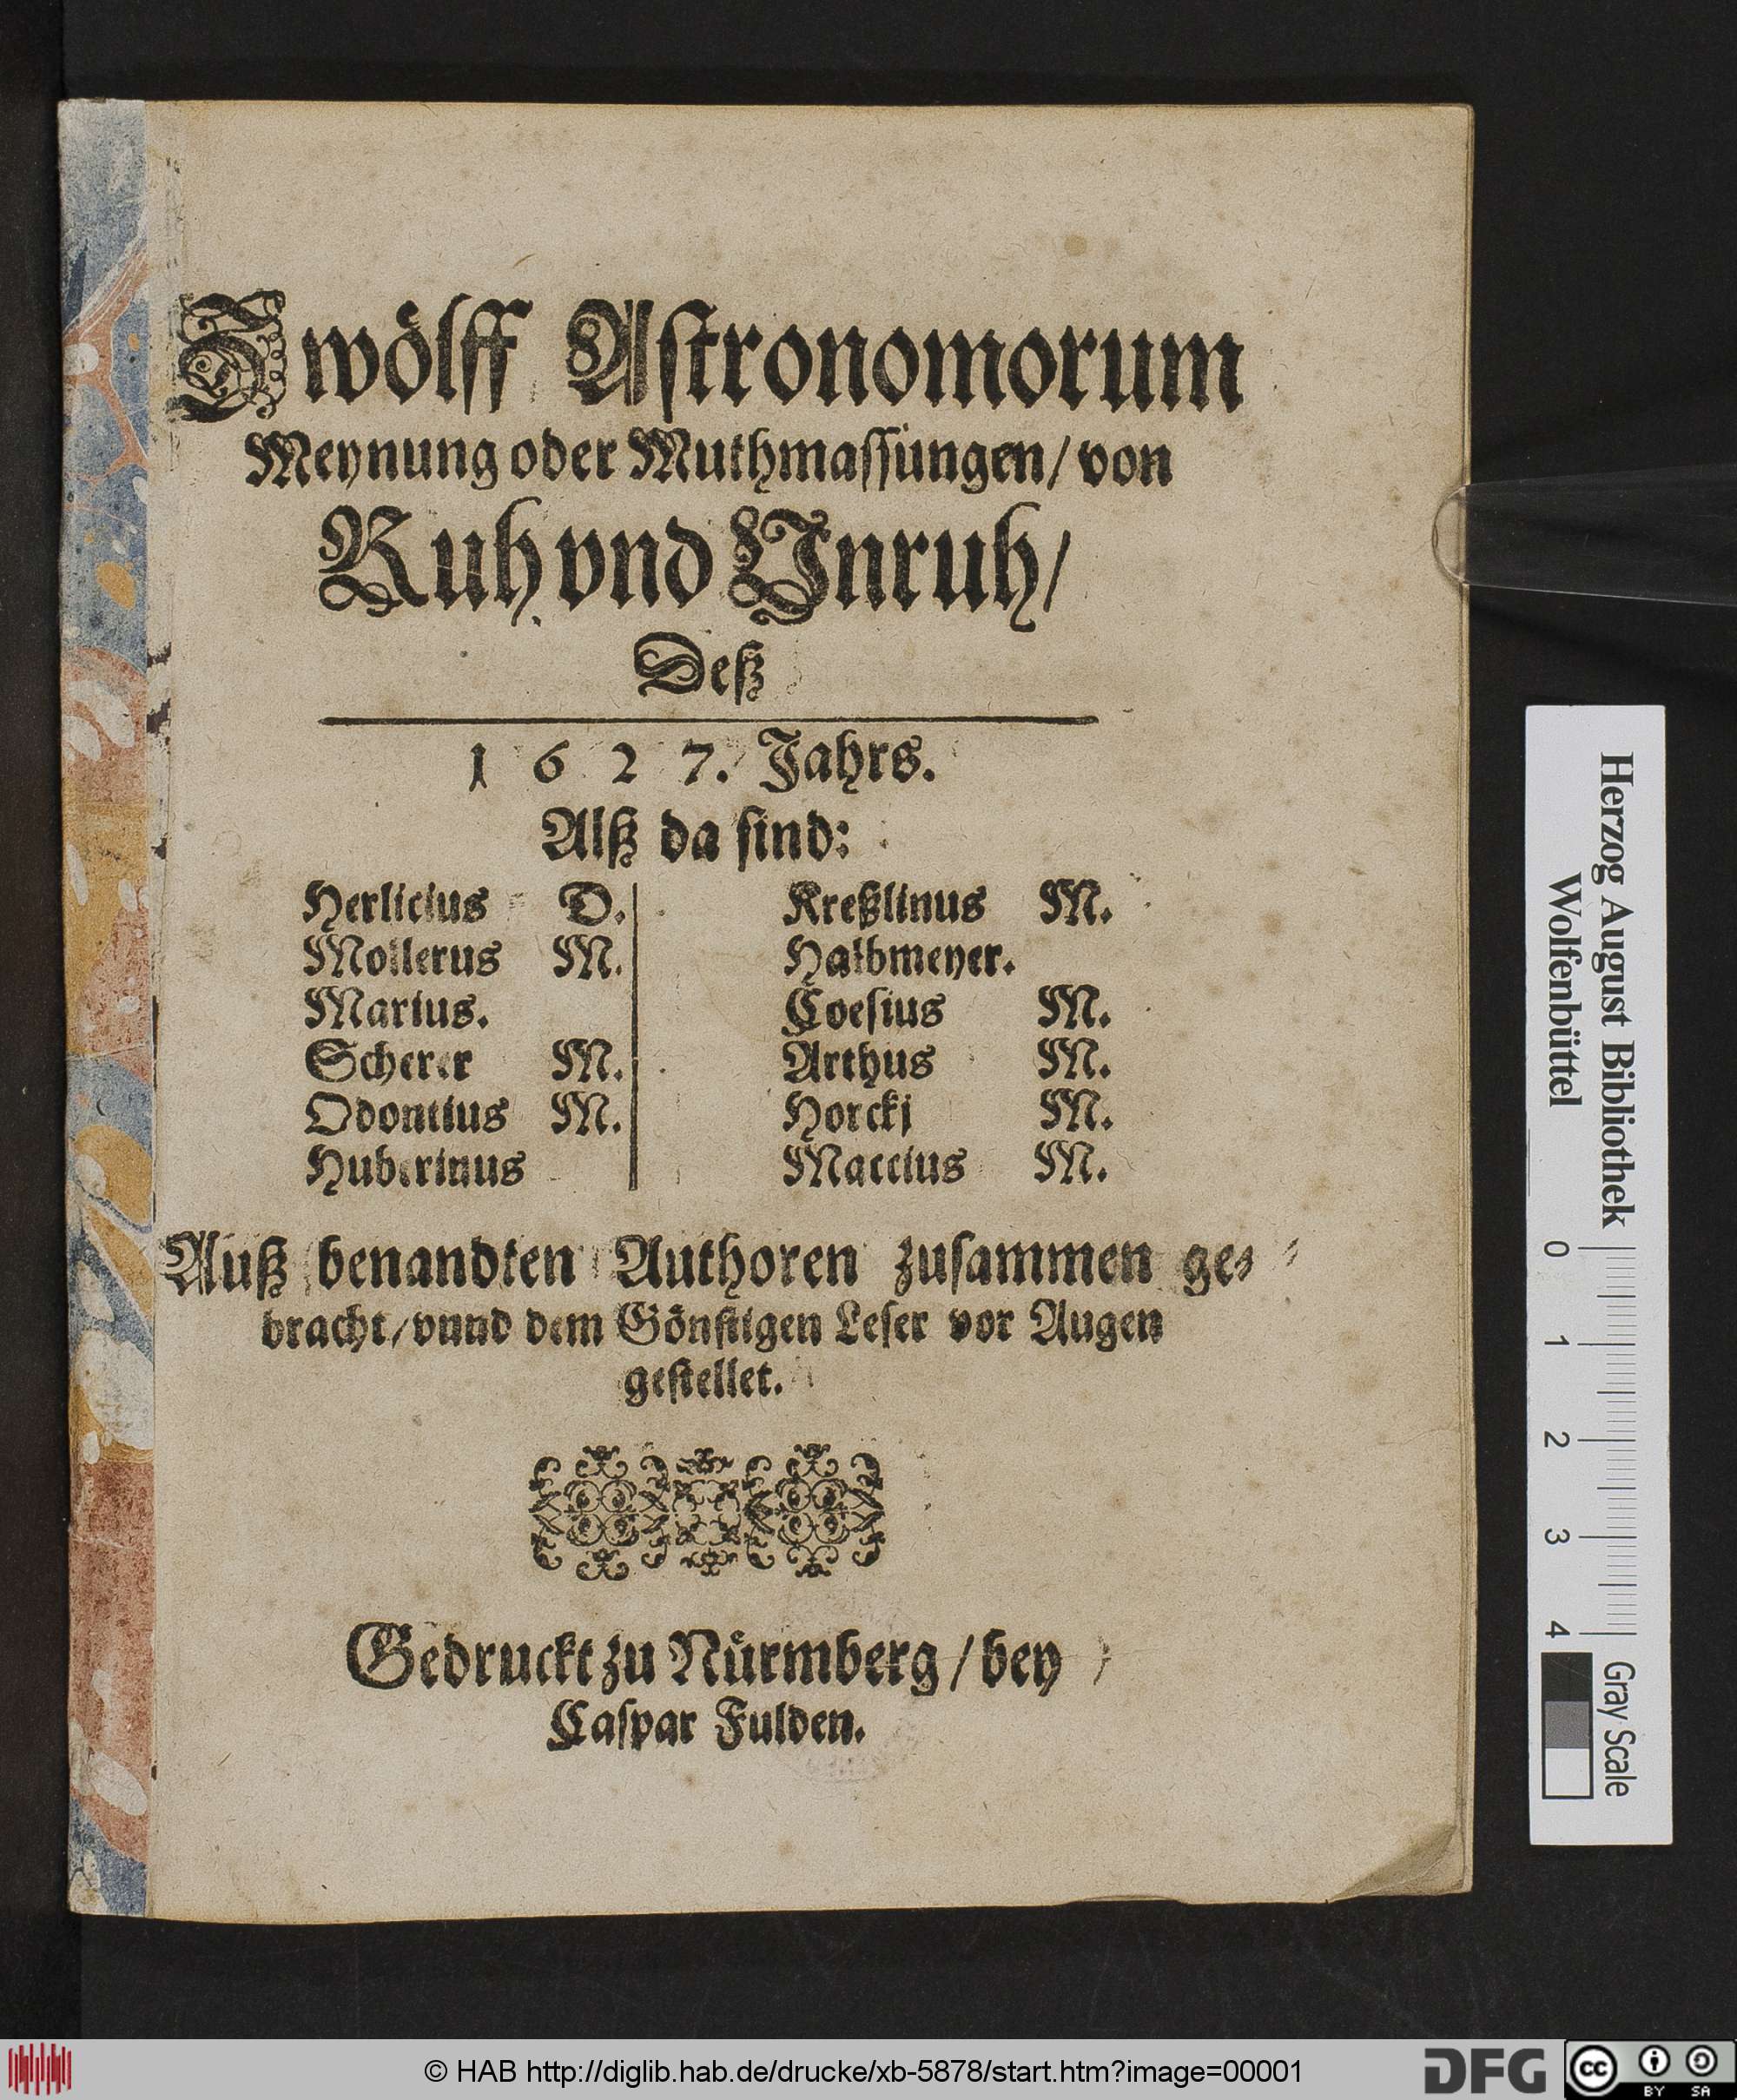 Zwölff Astronomorum
Meynung oder Muthmassungen/ von
Ruh vnd Vnruh/
Deß
1 6 2 7. Jahrs.
Alß da sind:
Herlicius D.
Mollerus M.
Marius.
Scherer M.
Odontius M.
Huberinus
Kreßlinus M.
Halbmeyer.
Coesius M.
Arthus M.
Horckj M.
Maccius M.
Auß benandten Authoren zusammen ge-
bracht/ vnnd dem Gönstigen Leser vor Augen
gestellet.
Gedruckt zu Nürmberg/ bey
Caspar Fulden.
Herzog August Bibliothek
Wolfenbüttel
0 1 2 3 4
Gray Scale
© HAB http://diglib.hab.de/drucke/xb-5878/start.htm?image=00001
DFG
cc BY SA